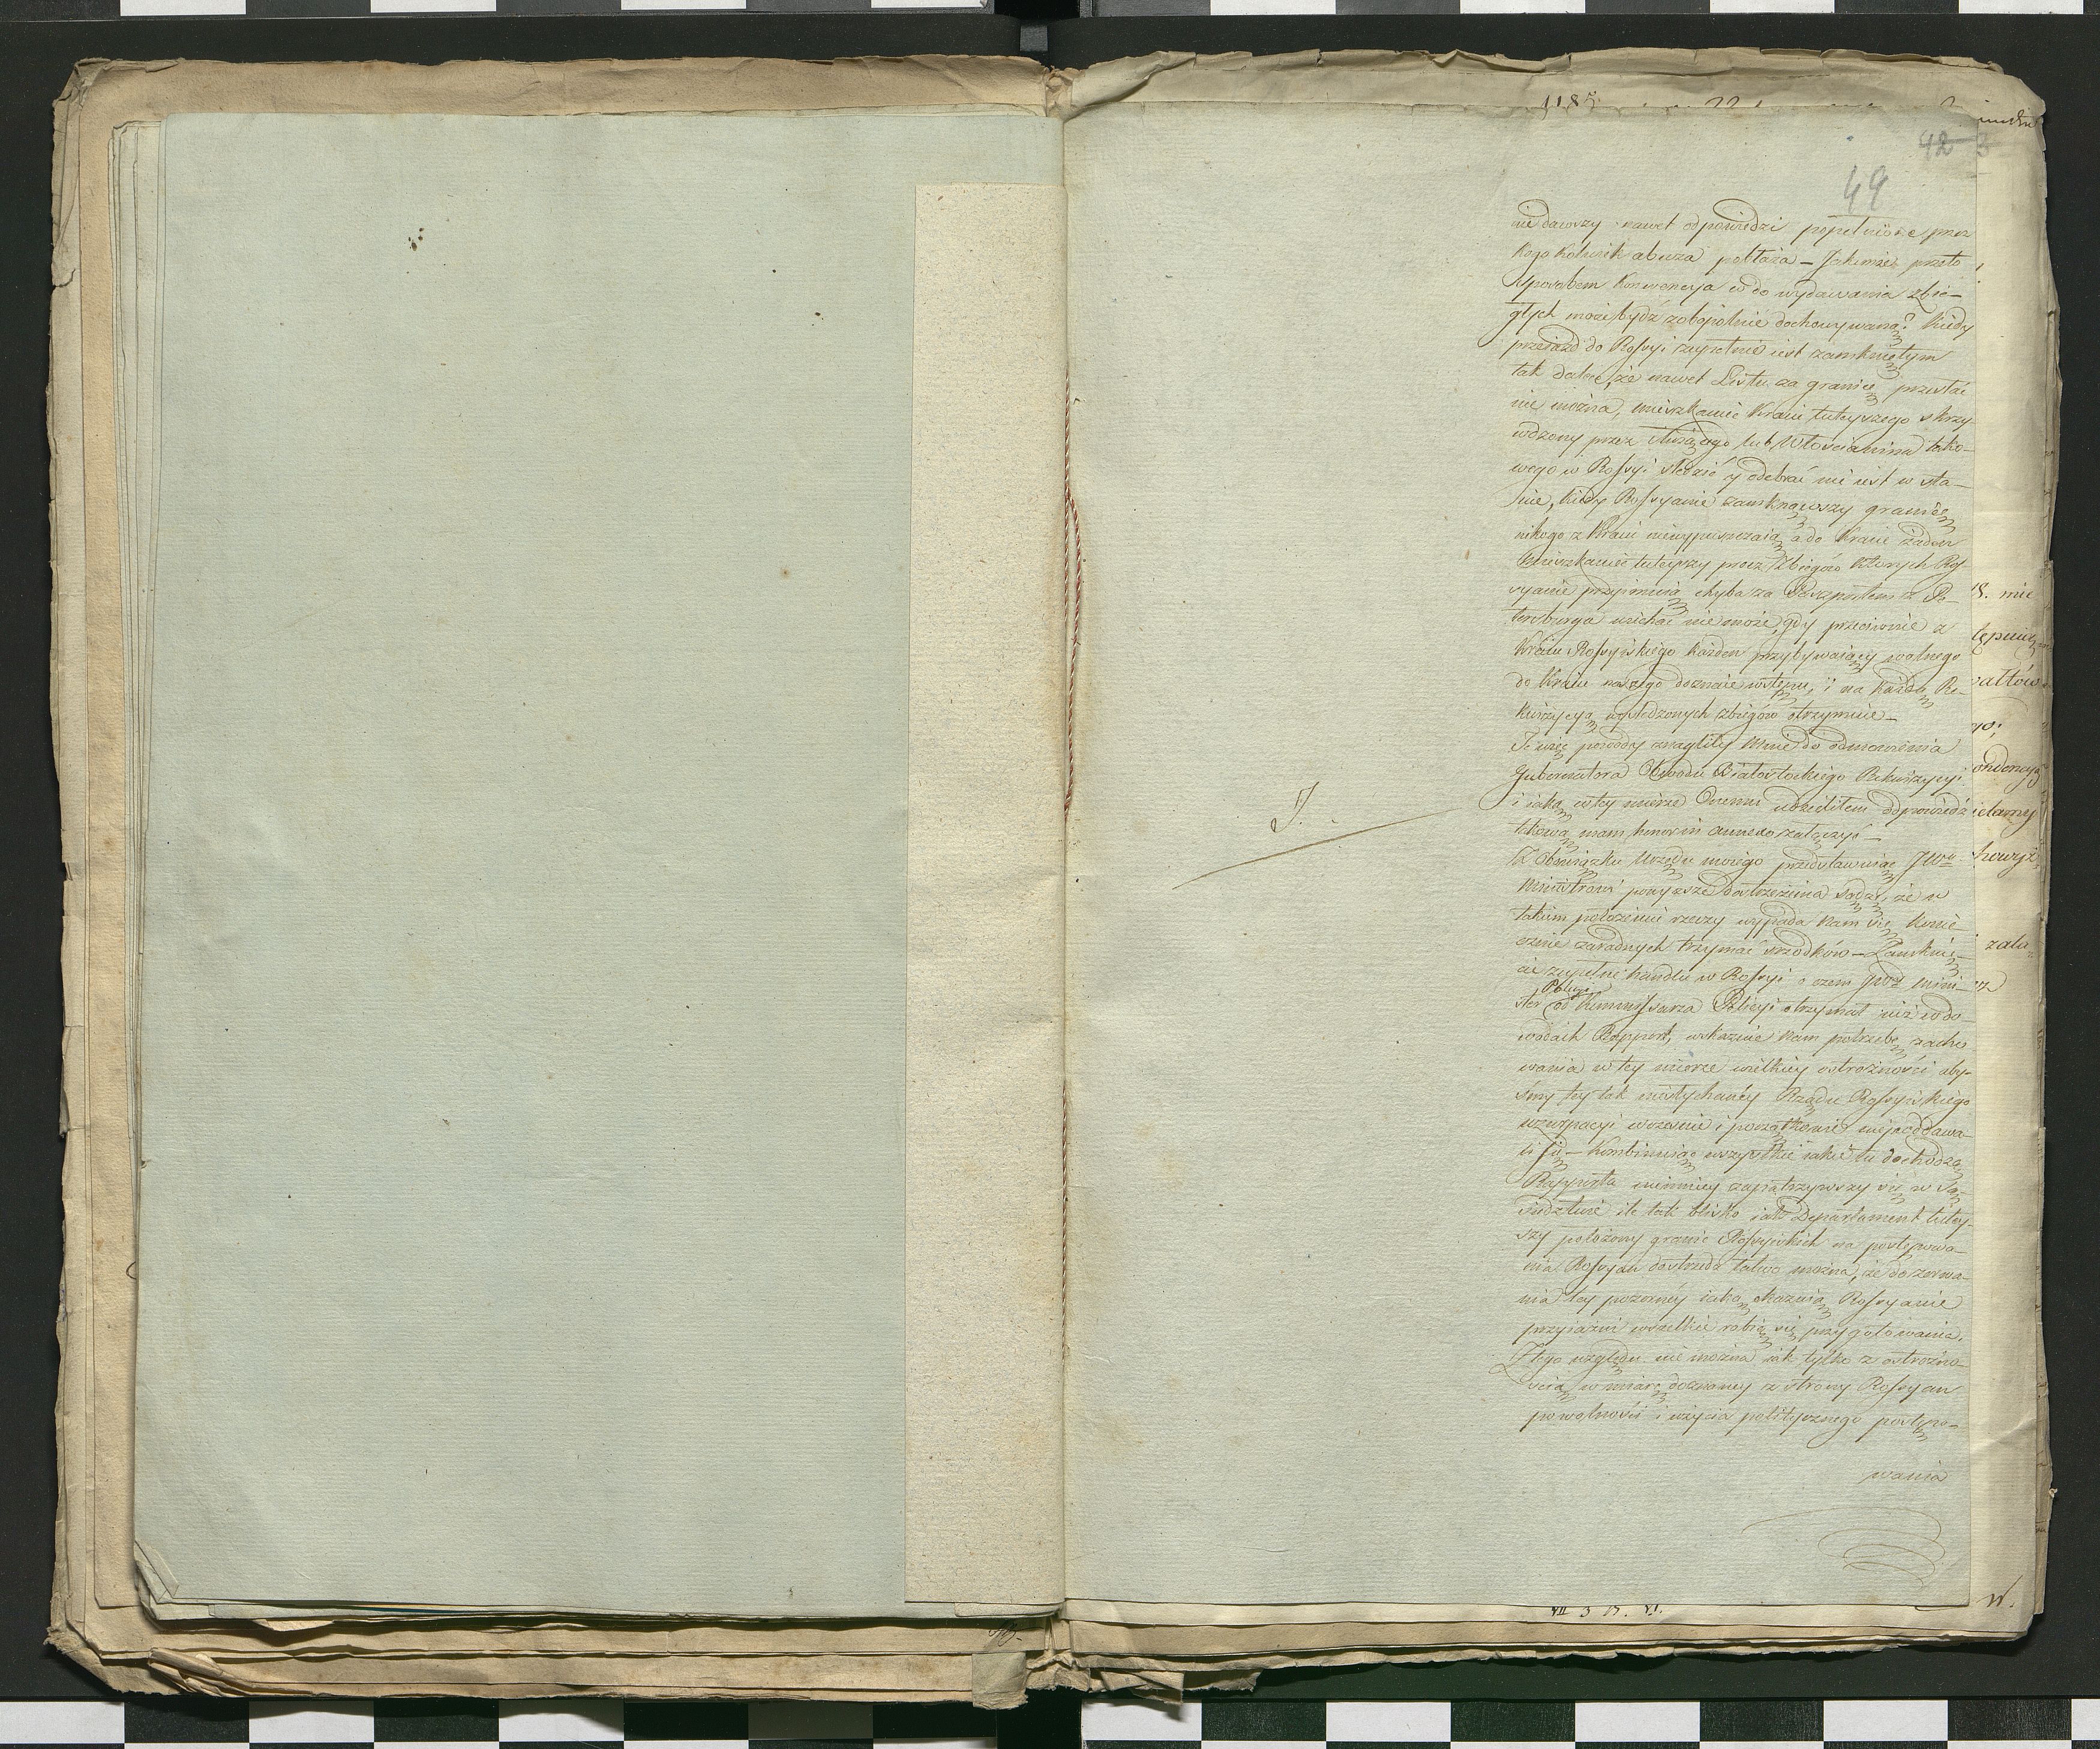 1185
42 3
49
nie dawszy nawet odpowiedzi popełnione przez
kogokolwiek abuza pobłaża – Jakimże przeto
sposobem Konwencyja co do wydawania zbie-
głych może bydź zobopolnie dochowywaną? kiedy
przeiazd do Rossyi zupełnie iest zamkniętym
tak dalece, że nawet Listu za granicę przesłać
nie można, mieszkaniec Kraiu tuteyszego skrzy-
wdzony przez służącego lub Włościanina tako-
wego w Rossyi śledzić y odebrać nie iest w sta-
nie, kiedy Rossyanie zamknąwszy granicę
nikogo z Kraiu niewypuszczaią, a do Kraiu żaden
Mieszkaniec tuteyszy procz Zbiegów których Ros-
syanie przyimuią chyba za Paszportem z Pe-
tersburga wiechać nie może, gdy przeciwnie z
Kraiu Rossyiskiego każden przybywaiący wolnego
do Kraiu naszego doznaie wstępu, i na każdą Re-
kwizycyą wyśledzonych zbiegów otrzymuie –
Te więc powody znagliły mnie do odmowienia
Gubernatora Obwodu Białostockiego Rekwizycyi
i iaką w tey mierze Onemu udzieliłem odpowiedź
takową mam honor in annexo załączyć –
J.
Z Obowiązku Urzędu moiego przedstawuiąc JWu
Ministrowi powyższe dostrzeżenia sądzę, że w
takim położeniu rzeczy wypada nam się konie-
cznie zaradnych trzymać srzodków – Zamknię-
cie zupełne handlu w Rossyi o czem JWż Mini-
ster Policyi od Kommissarza Policyi otrzymał iuż w do
wodach Rapport, wskazuie nam potrzebę zacho
wania w tey mierze wielkiey ostrożności aby-
śmy tey tak niesłychaney Rządu Rossyiskiego
uzurpacyi wcześnie i początkowie niepoddawa-
li się – Kombinuiąc wszystkie iakie tu dochodzą
Rapporta niemniey zapatrzywszy się w Są-
siedztwie ile tak blisko iak Departament tutey-
szy położony granic Rossyiskich na postępowa-
nia Rossyan dostrzedz łatwo można, że do zerwa-
nia tey pozorney iaką okazuią Rossyanie
przyiaźni wszelkie robią się przygotowania.
Z tego względu nie można iak tylko z ostrożno-
ścią w miarę doznaney z strony Rossyan
powolności i użycia politycznego postępo-
wania
18. mie
zała